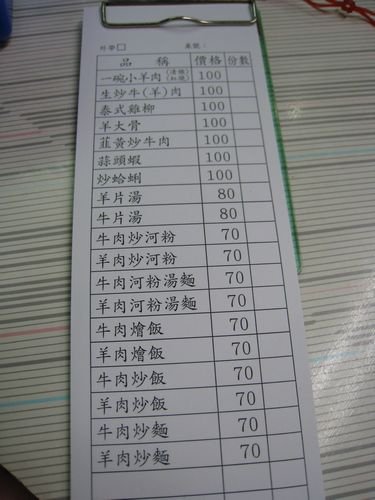 外帶□ 桌號：
品稱 價格 份數
一碗小羊肉(清燉)(紅燒) 100
生炒牛(羊)肉 100
泰式雞柳 100
羊大骨 100
韮黃炒牛肉 100
蒜頭蝦 100
炒蛤蜊 100
羊片湯 80
牛片湯 80
牛肉炒河粉 70
羊肉炒河粉 70
牛肉河粉湯麵 70
羊肉河粉湯麵 70
牛肉燴飯 70
羊肉燴飯 70
牛肉炒飯 70
羊肉炒飯 70
牛肉炒麵 70
羊肉炒麵 70